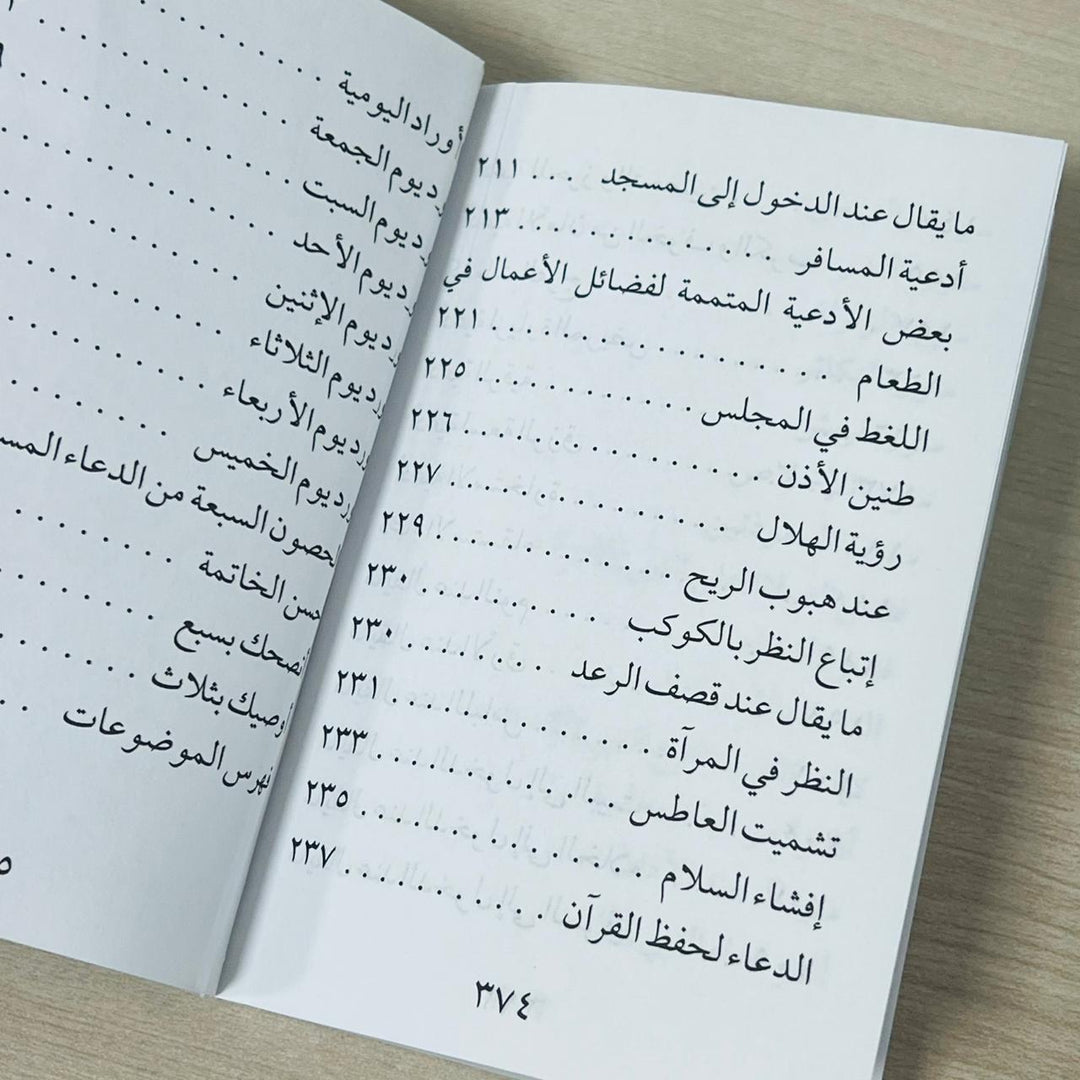 ما يقال عند الدخول إلى المسجد . . . ٢١١
أدعية المسافر . . . . . . . . . . . ٢١٣
بعض الأدعية المتممة لفضائل الأعمال في
الطعام . . . . . . . . . . . . . . . . . ٢٢١
اللغط في المجلس . . . . . . . . . . . ٢٢٥
طنين الأذن . . . . . . . . . . . . . . . ٢٢٦
رؤية الهلال . . . . . . . . . . . . . . ٢٢٧
عند هبوب الريح . . . . . . . . . . . . ٢٢٩
إتباع النظر بالكوكب . . . . . . . . . . ٢٣٠
ما يقال عند قصف الرعد . . . . . . . . ٢٣٠
النظر في المرآة . . . . . . . . . . . . . ٢٣١
تشميت العاطس . . . . . . . . . . . . ٢٣٣
إفشاء السلام . . . . . . . . . . . . . . ٢٣٥
الدعاء لحفظ القرآن . . . . . . . . . . ٢٣٧
٣٧٤
أوراد اليومية . . . . . . . . . .
يوم الجمعة . . . . . . . . . .
يوم السبت . . . . . . . . . .
يوم الأحد . . . . . . . . . .
يوم الإثنين . . . . . . . . . .
يوم الثلاثاء . . . . . . . . . .
يوم الأربعاء . . . . . . . . . .
يوم الخميس . . . . . . . . . .
الحصون السبعة من الدعاء
حسن الخاتمة . . . . . . . .
أنصحك بسبع . . . . . . . .
أوصيك بثلاث . . . . . . . .
فهرس الموضوعات . . .